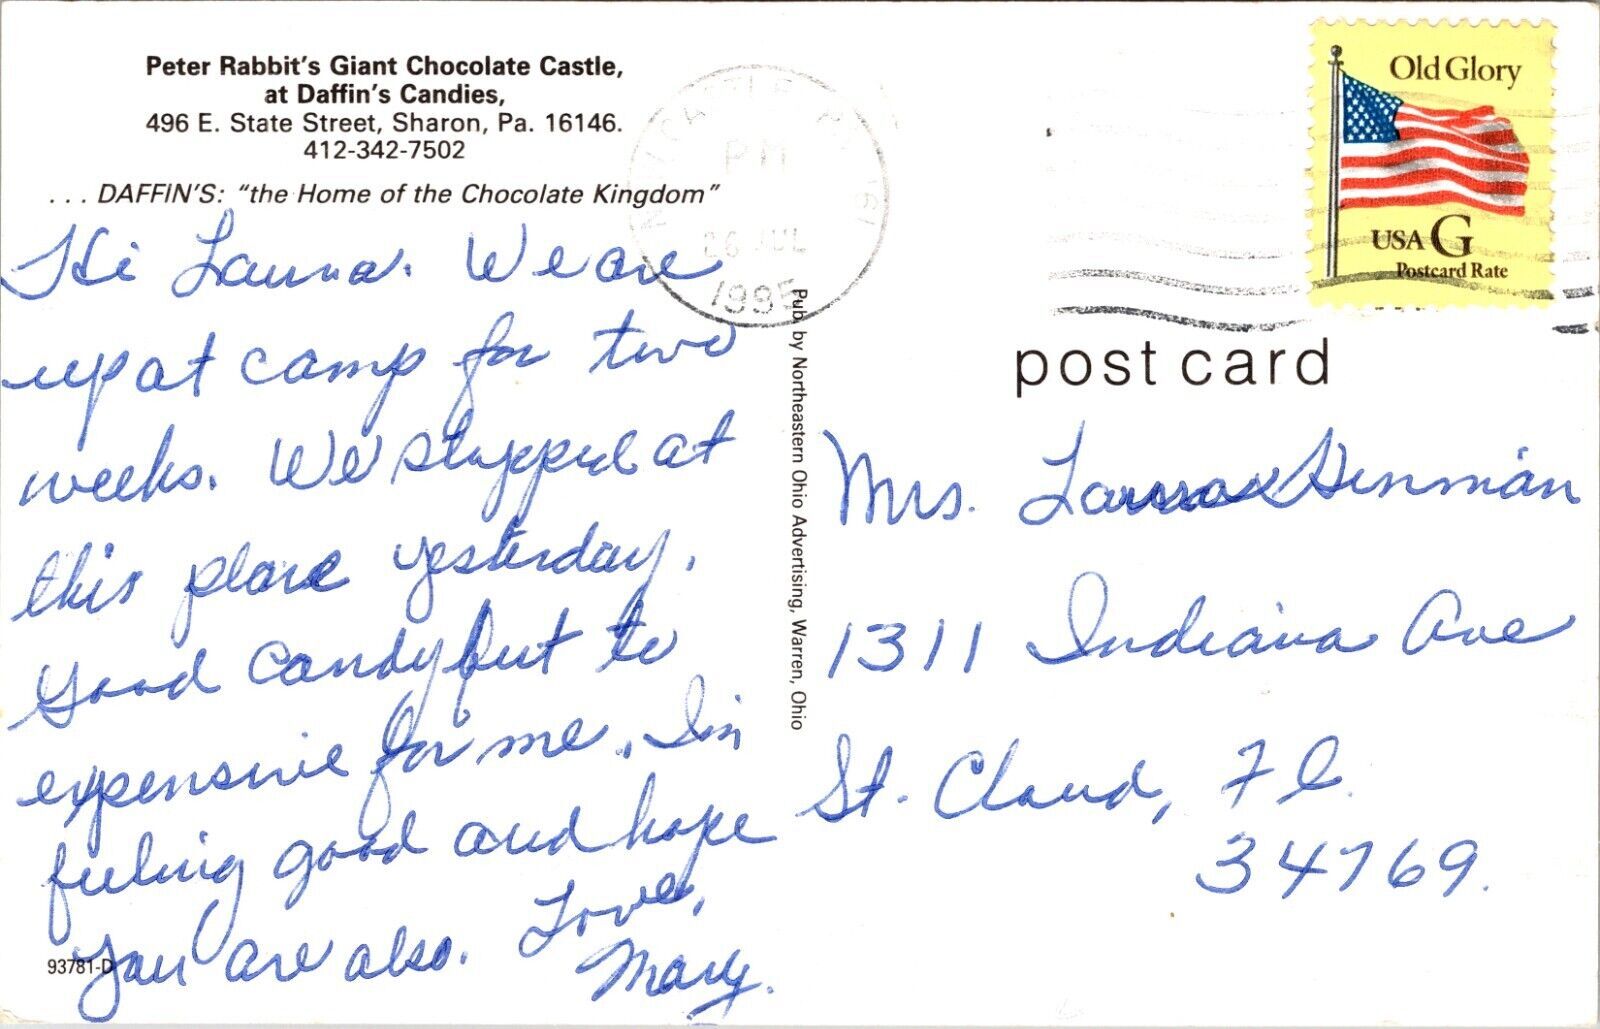 Peter Rabbit's Giant Chocolate Castle,
at Daffin's Candies,
496 E. State Street, Sharon, Pa. 16146.
412-342-7502
. . . DAFFIN'S: "the Home of the Chocolate Kingdom"
Hi Launa. We are
up at camp for two
weeks. We stopped at
this place yesterday.
Good candy but to
expensive for me. I'm
feeling good and hope
you are also. Love,
Mary.
93781-D
Pub by Northeastern Ohio Advertising, Warren, Ohio
PM
26 JUL
1995
Old Glory
USA G
Postcard Rate
post card
Mrs. Launa Hinman
1311 Indiana Ave
St. Cloud, Fl.
34769.